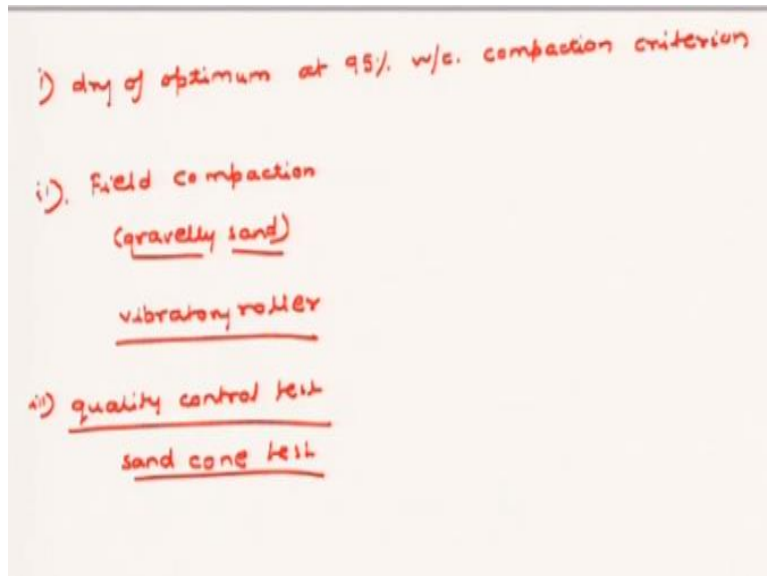 i) dry of optimum at 95% w/c. compaction criterion
ii). Field compaction
(gravelly sand)
vibratory roller
iii) quality control test
sand cone test